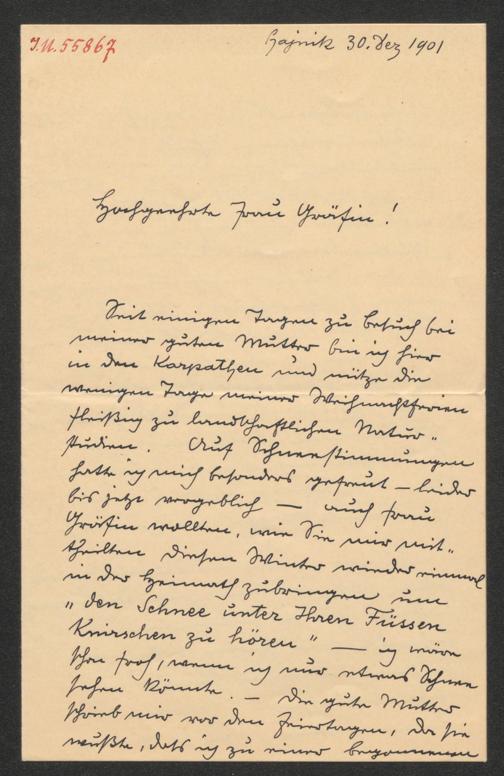 I.N.55867
Hajnik 30. Dez 1901
Hochgeehrte Frau Gräfin!
Seit einigen Tagen zu Besuch bei
meiner guten Mutter bin ich hier
in den Karpathen und nütze die
wenigen Tage meiner Weihnachtsferien
fleißig zu landschaftlichen Natur„
studien. Auf Schneestimmungen
hatte ich mich besonders gefreut – leider
bis jetzt vergeblich – auch Frau
Gräfin wollten, wie Sie mir mit„
theilten diesen Winter wieder einmal
in der Heimath zubringen um
„den Schnee unter Ihren Füssen
Knirschen zu hören" – ich wäre
schon froh, wenn ich nur etwas Schnee
sehen könnte. – Die gute Mutter
schrieb mir vor den Feiertagen, da sie
wußte, dass ich zu einer begonnenen